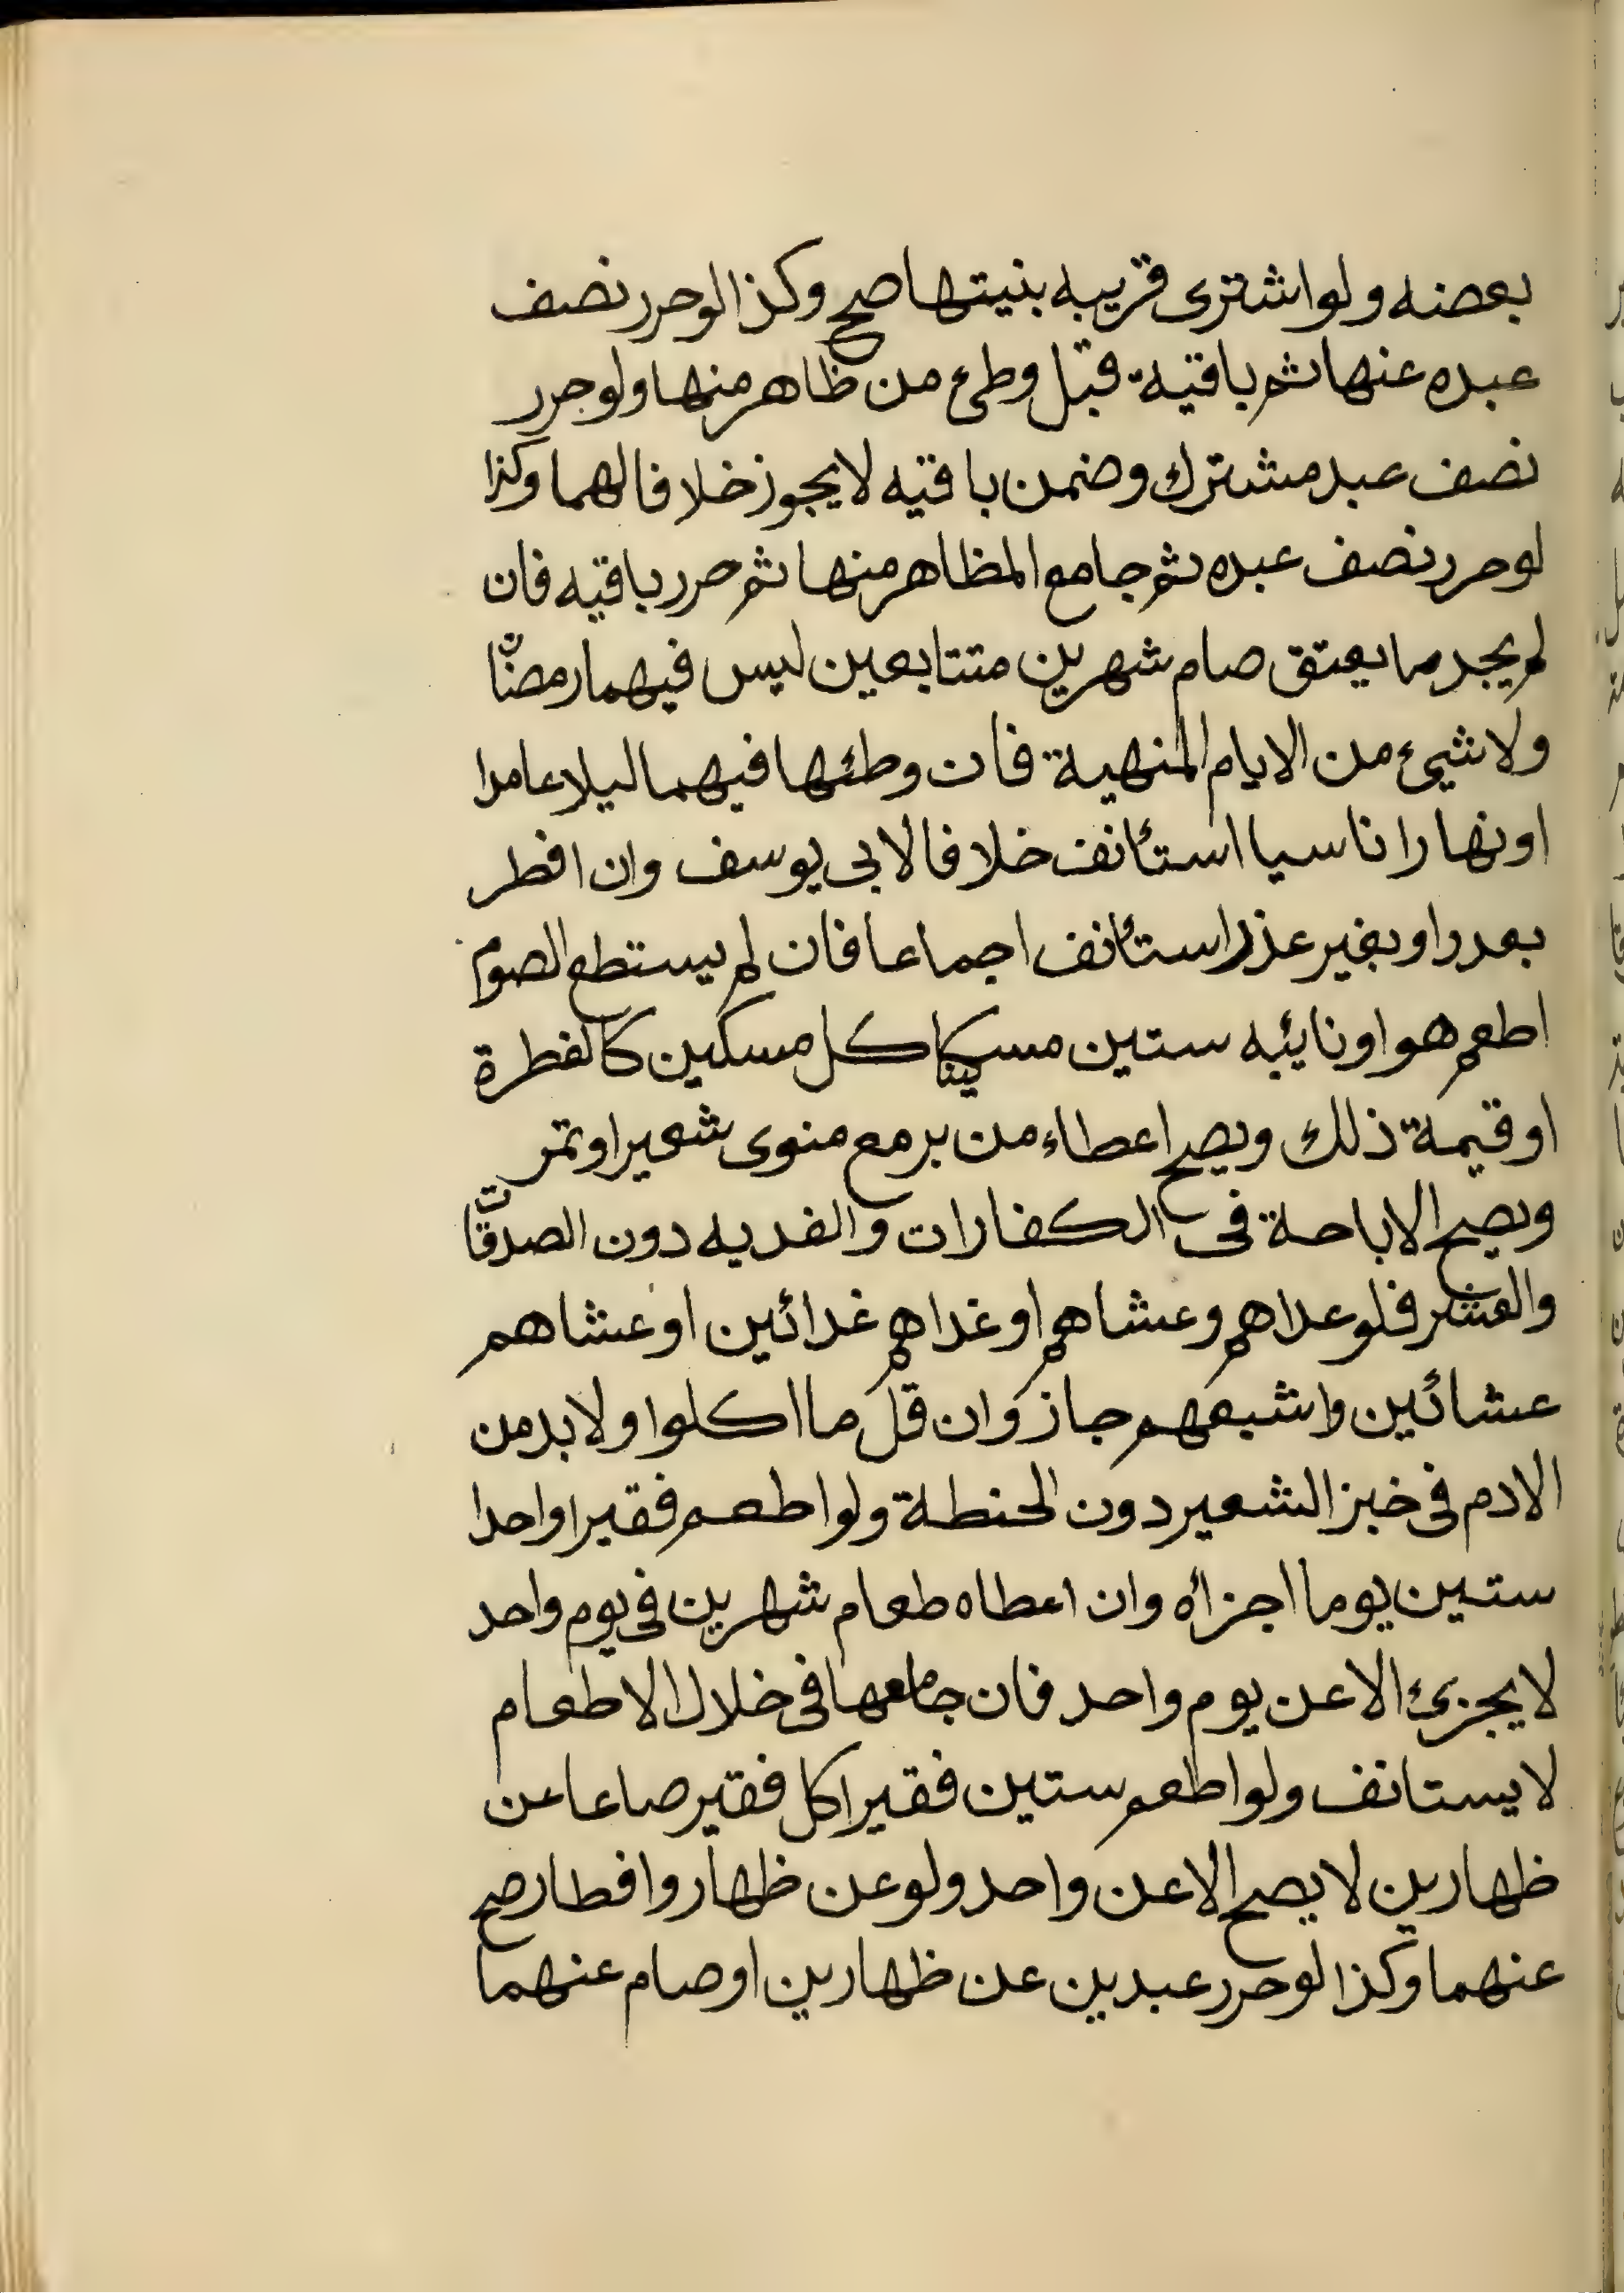 بعضه ولو اشترى قريبه بنيتها صح وكذا لو حرر نصف
عبده عنها ثم باقية قبل وطئ من ظاهر منها ولو حرر
نصف عبد مشترك وضمن باقيه لا يجوز خلافا لهما وكذا
لو حرر نصف عبده ثم جامع المظاهر منها ثم حرر باقيه فان
لم يجد ما يعتق صام شهرين متتابعين ليس فيهما رمضان
ولا شيئ من الايام المنهية فان وطئها فيهما ليلا عامدا
او نهارا ناسيا استئانف خلافا لابى يوسف وان افطر
بعدر او بغير عذر استئانف اجماعا فان لم يستطع الصوم
اطعم هو او نايئبه ستين مسكينا كل مسكين كالفطرة
او قيمة ذلك ويصح اعطاء من بر مع منوى شعير او تمر
ويصح الاباحة فى الكفارات والفديه دون الصدقات
والعشر فلو عداهم وعشاهم او غداهم غدائين او عشاهم
عشائين واشبعهم جاز وان قل ما اكلوا ولا بد من
الادم فى خبز الشعير دون الحنطة ولو اطعم فقيرا واحدا
ستين يوما اجزأه وان اعطاه طعام شهرين فى يوم واحد
لا يجزئ الا عن يوم واحد فان جامعها فى خلال الاطعام
لا يستانف ولو اطعم ستين فقيرا كل فقير صاعا عن
ظهارين لا يصح الا عن واحد ولو عن ظهار وافطار صح
عنهما وكذا لو حرر عبدين عن ظهارين او صام عنهما